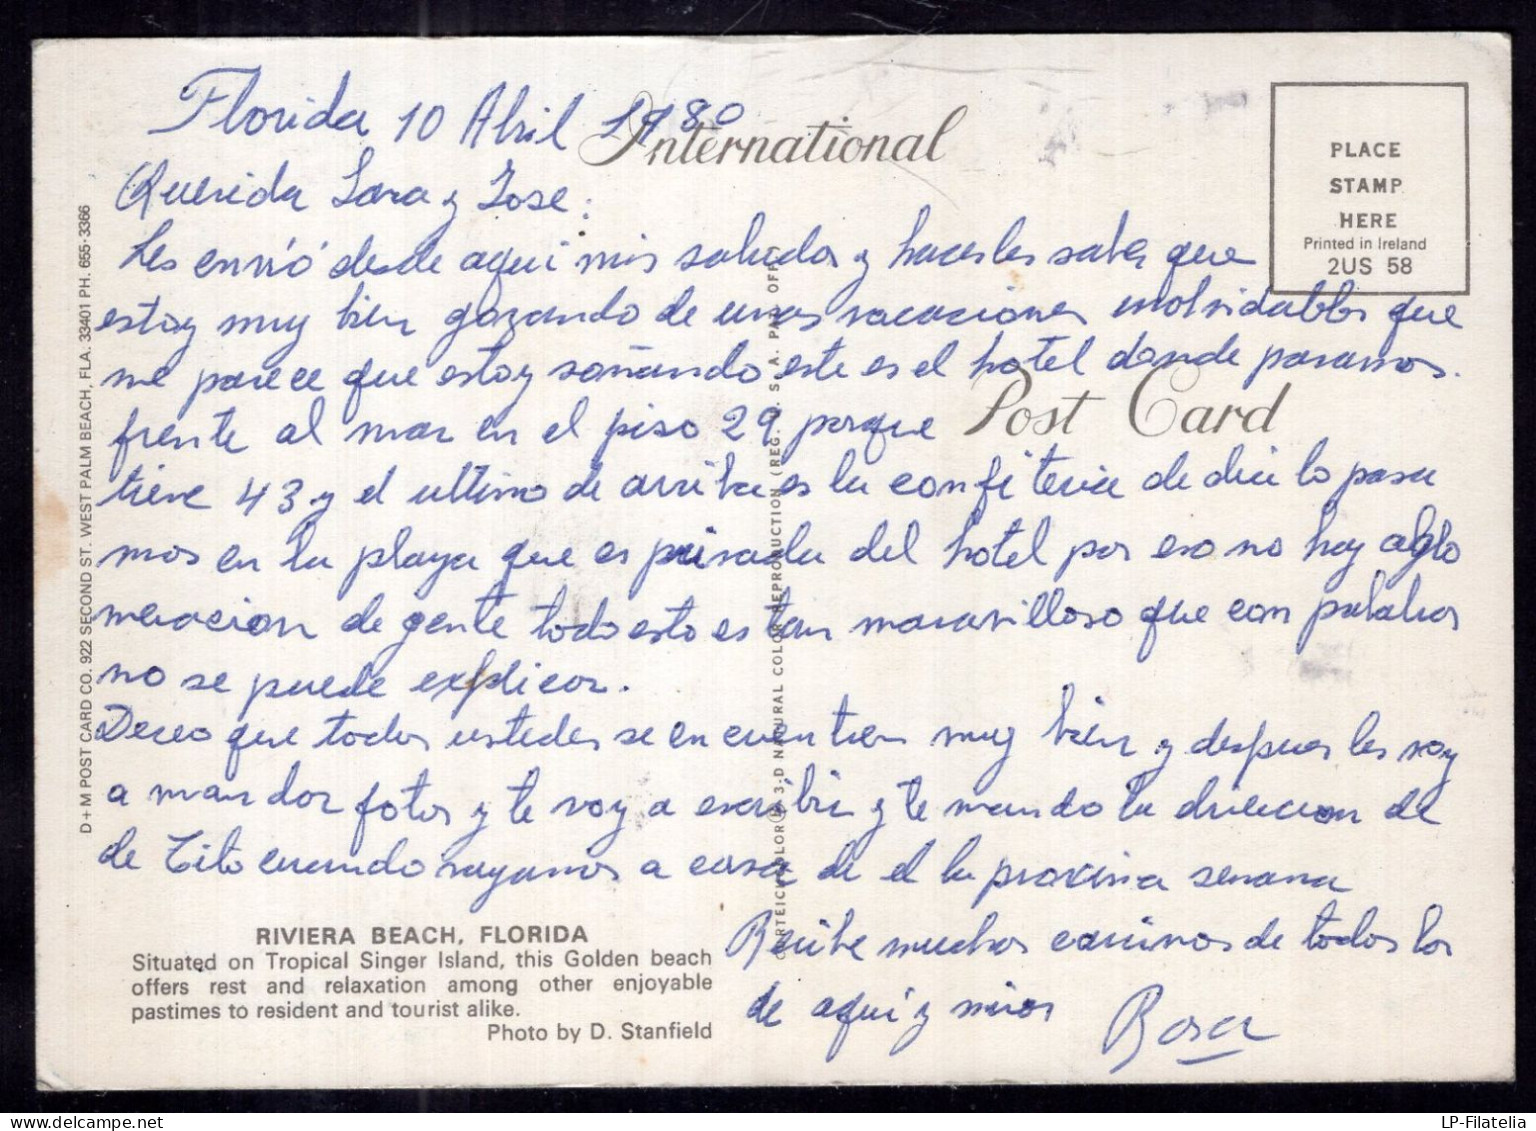 Florida 10 Abril 1980
International
Querida Sara y Jose:
Les envió desde aqui mis saludos y hacerles saber que
estoy muy bien gozando de unas vacaciones inolvidables que
me parece que estoy soñando este es el hotel donde paramos.
Post Card
frente al mar en el piso 29 porque
tiene 43 y el ultimo de arriba es la confiteria de dia lo pasa
mos en la playa que es privada del hotel por eso no hay aglo
meracion de gente todo esto es tan maravilloso que con palabras
no se puede explicar.
Deceo que todos ustedes se encuentren muy bien y despues les voy
a mandar fotos y te voy a escribir y te mando la direccion de
de Tito cuando vayamos a casa de el la proxima semana
Recibe muchos cariños de todos los
de aqui y mios Rosa
PLACE
STAMP
HERE
Printed in Ireland
2US 58
D+M POST CARD CO. 922 SECOND ST. WEST PALM BEACH, FLA. 33401 PH. 655-3366
3-D NATURAL COLOR REPRODUCTION (REG. U. S. A. PAT. OFF)
RIVIERA BEACH, FLORIDA
Situated on Tropical Singer Island, this Golden beach
offers rest and relaxation among other enjoyable
pastimes to resident and tourist alike.
Photo by D. Stanfield
LP-Filatelia